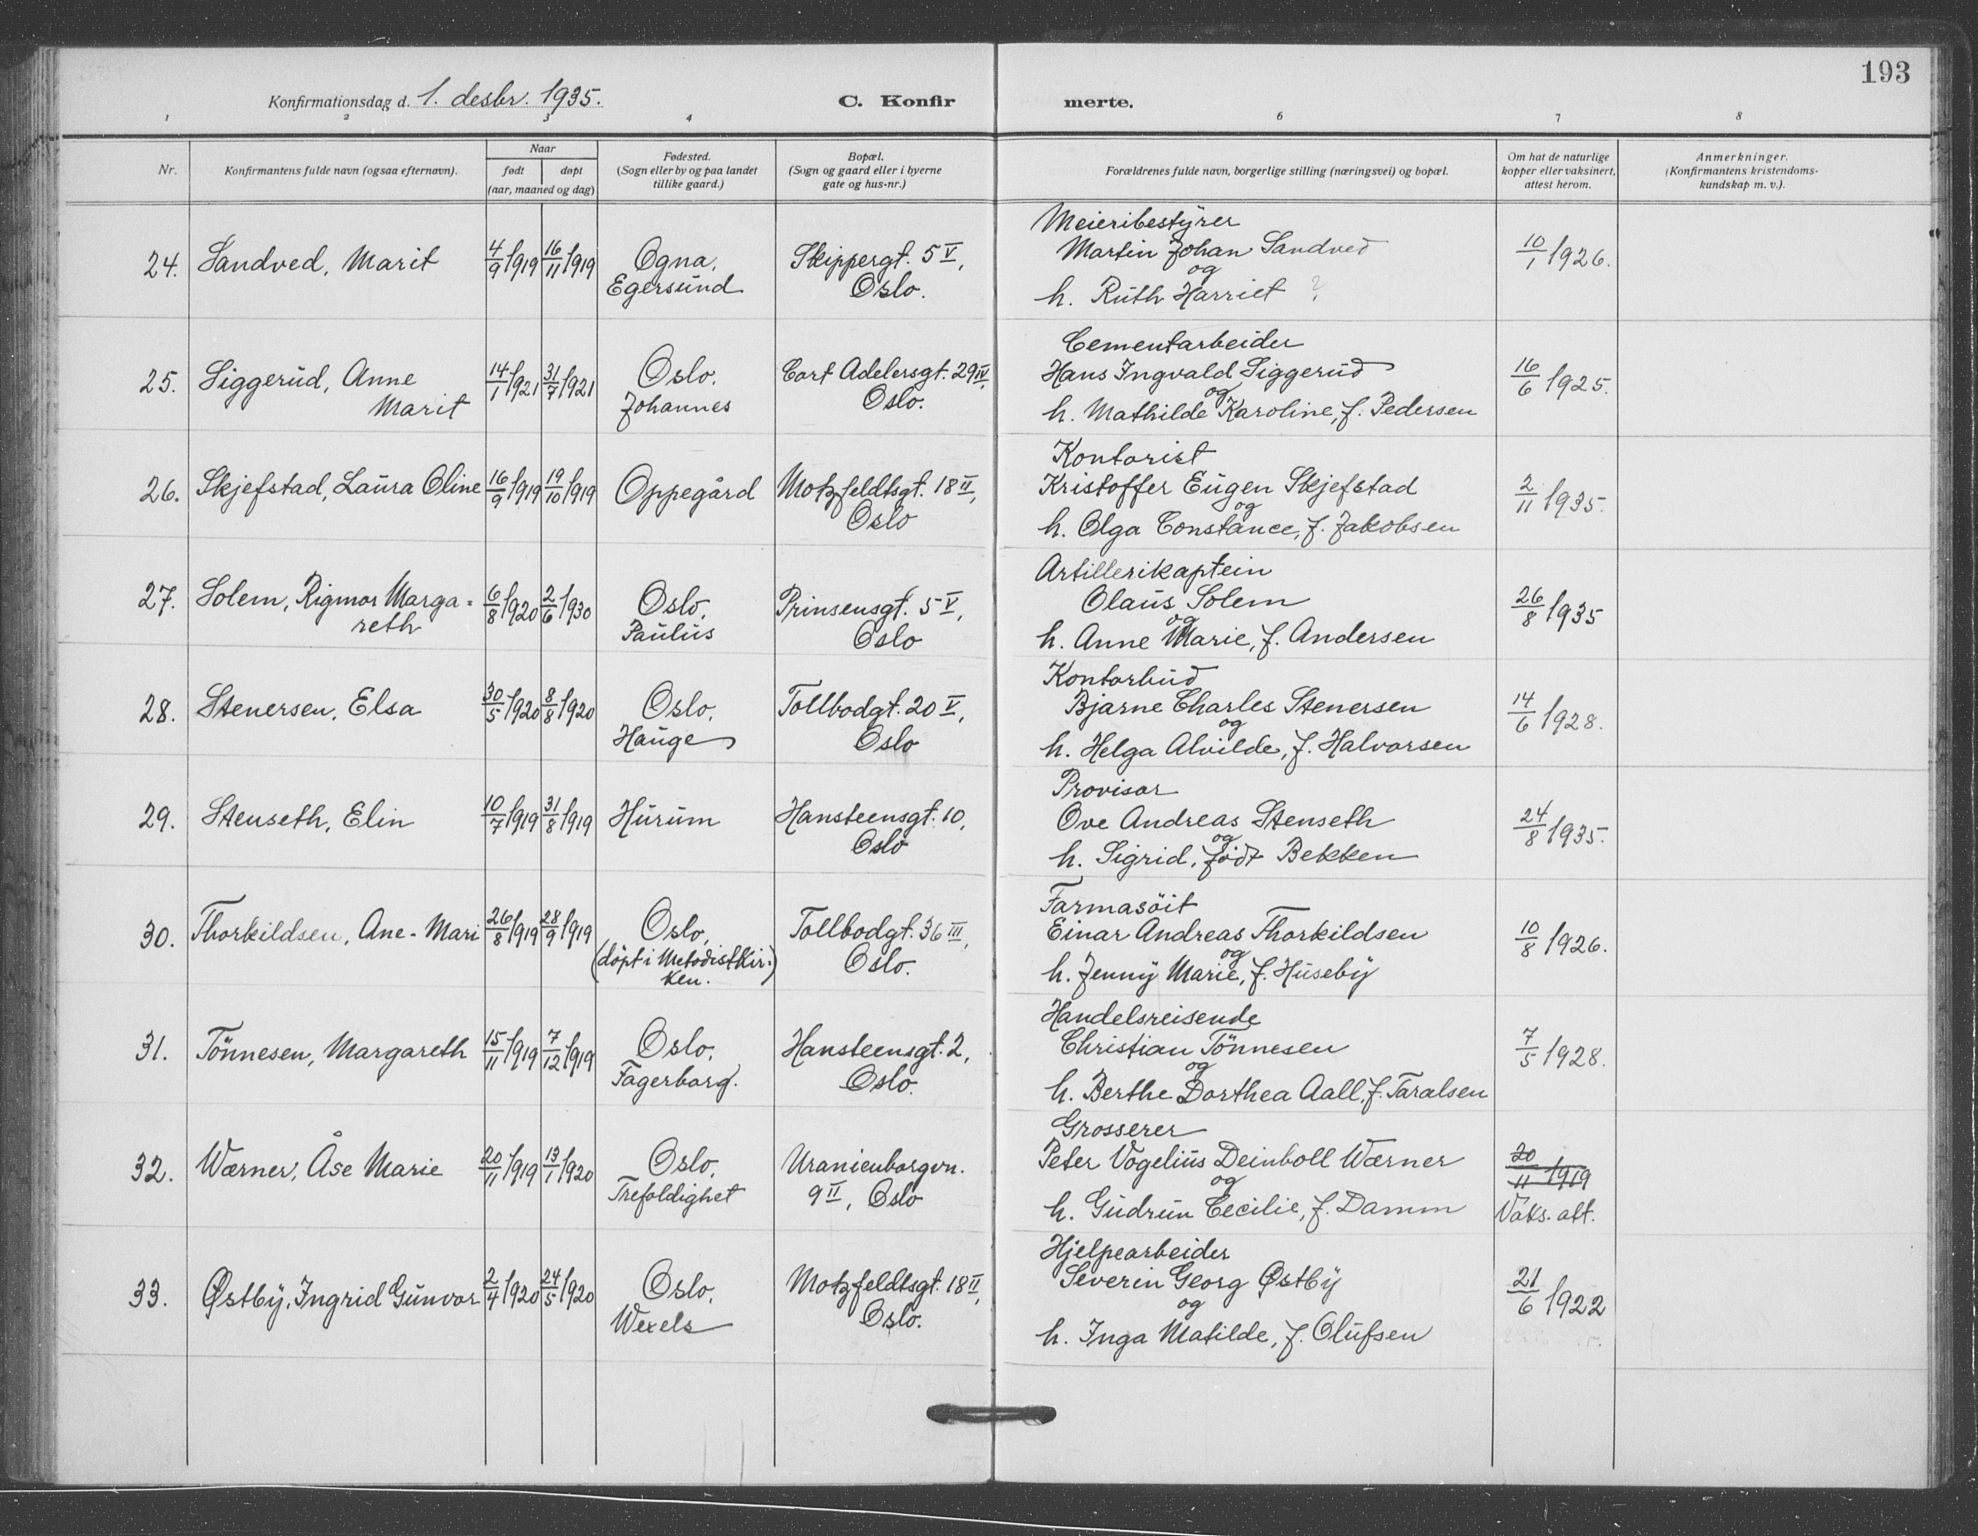 193
Konfirmationsdag d. 1. desbr. 1935.
C. Konfirmerte.
1 2 3 4 6 7 8
Nr.
Konfirmantens fulde navn (ogsaa efternavn).
Naar
født døpt
(aar, maaned og dag)
Fødested.
(Sogn eller by og paa landet
tillike gaard.)
Bopæl.
(Sogn og gaard eller i byerne
gate og hus-nr.)
Forældrenes fulde navn, borgerlige stilling (næringsvei) og bopæl.
Om hat de naturlige
kopper eller vaksinert,
attest herom.
Anmerkninger.
(Konfirmantens kristendoms-
kundskap m. v.).
24. Sandved, Marit 4/9 1919 16/11 1919
Ogna,
Egersund
Skippergt. 5 V,
Oslo.
Meieribestyrer
Martin Johan Sandved
og
h. Ruth Harriet ?
10/1 1926.
25. Siggerud, Anne
Marit
14/1 1921 31/7 1921
Oslo.
Johannes
Cort Adelersgt. 29 IV,
Oslo.
Cementarbeider
Hans Ingvald Siggerud
og
h. Mathilde Karoline, f. Pedersen
16/6 1925.
26. Skjefstad, Laura Oline 16/9 1919 19/10 1919
Oppegård
Motzfeldtsgt. 18 II,
Oslo
Kontorist
Kristoffer Eugen Skjefstad
og
h. Olga Constance, f. Jakobsen
2/11 1935.
27. Solem, Rigmor Marga-
reth
6/8 1920 2/6 1930
Oslo,
Paulus
Prinsensgt. 5 V,
Oslo
Artillerikaptein
Olaus Solem
og
h. Anne Marie, f. Andersen
26/8 1935
28. Stenersen, Elsa 30/5 1920 8/8 1920
Oslo,
Hauge
Tollbodgt. 20 V,
Oslo
Kontorbud
Bjarne Charles Stenersen
og
h. Helga Alvilde, f. Halvorsen
14/6 1928.
29. Stenseth, Elin 10/7 1919 31/8 1919
Hurum
Hansteensgt. 10,
Oslo
Provisor
Ove Andreas Stenseth
og
h. Sigrid, født Bekken
24/8 1935.
30. Thorkildsen, Ane-Mari 26/8 1919 28/9 1919
Oslo,
(døpt i Metodistkir-
ken.)
Tollbodgt. 36 III,
Oslo.
Farmasøit
Einar Andreas Thorkildsen
og
h. Jenny Marie, f. Huseby
10/8 1926.
31. Tönnesen, Margareth 15/11 1919 7/12 1919
Oslo,
Fagerborg.
Hansteensgt. 2,
Oslo.
Handelsreisende
Christian Tönnesen
og
h. Berthe Dorthea Aall, f. Taralsen
7/5 1928.
32. Wærner, Åse Marie 20/11 1919 13/1 1920
Oslo,
Trefoldighet
Uranienborgvn.
9 II, Oslo
Grosserer
Peter Vogelius Deinboll Wærner
og
h. Gudrun Cecilie, f. Damm
20/11 1919
Vaks. att.
33. Østby, Ingrid Gunvor 2/4 1920 24/5 1920
Oslo,
Wexels
Motzfeldtsgt. 18 II,
Oslo.
Hjelpearbeider
Severin Georg Østby
og
h. Inga Matilde, f. Olufsen
21/6 1922